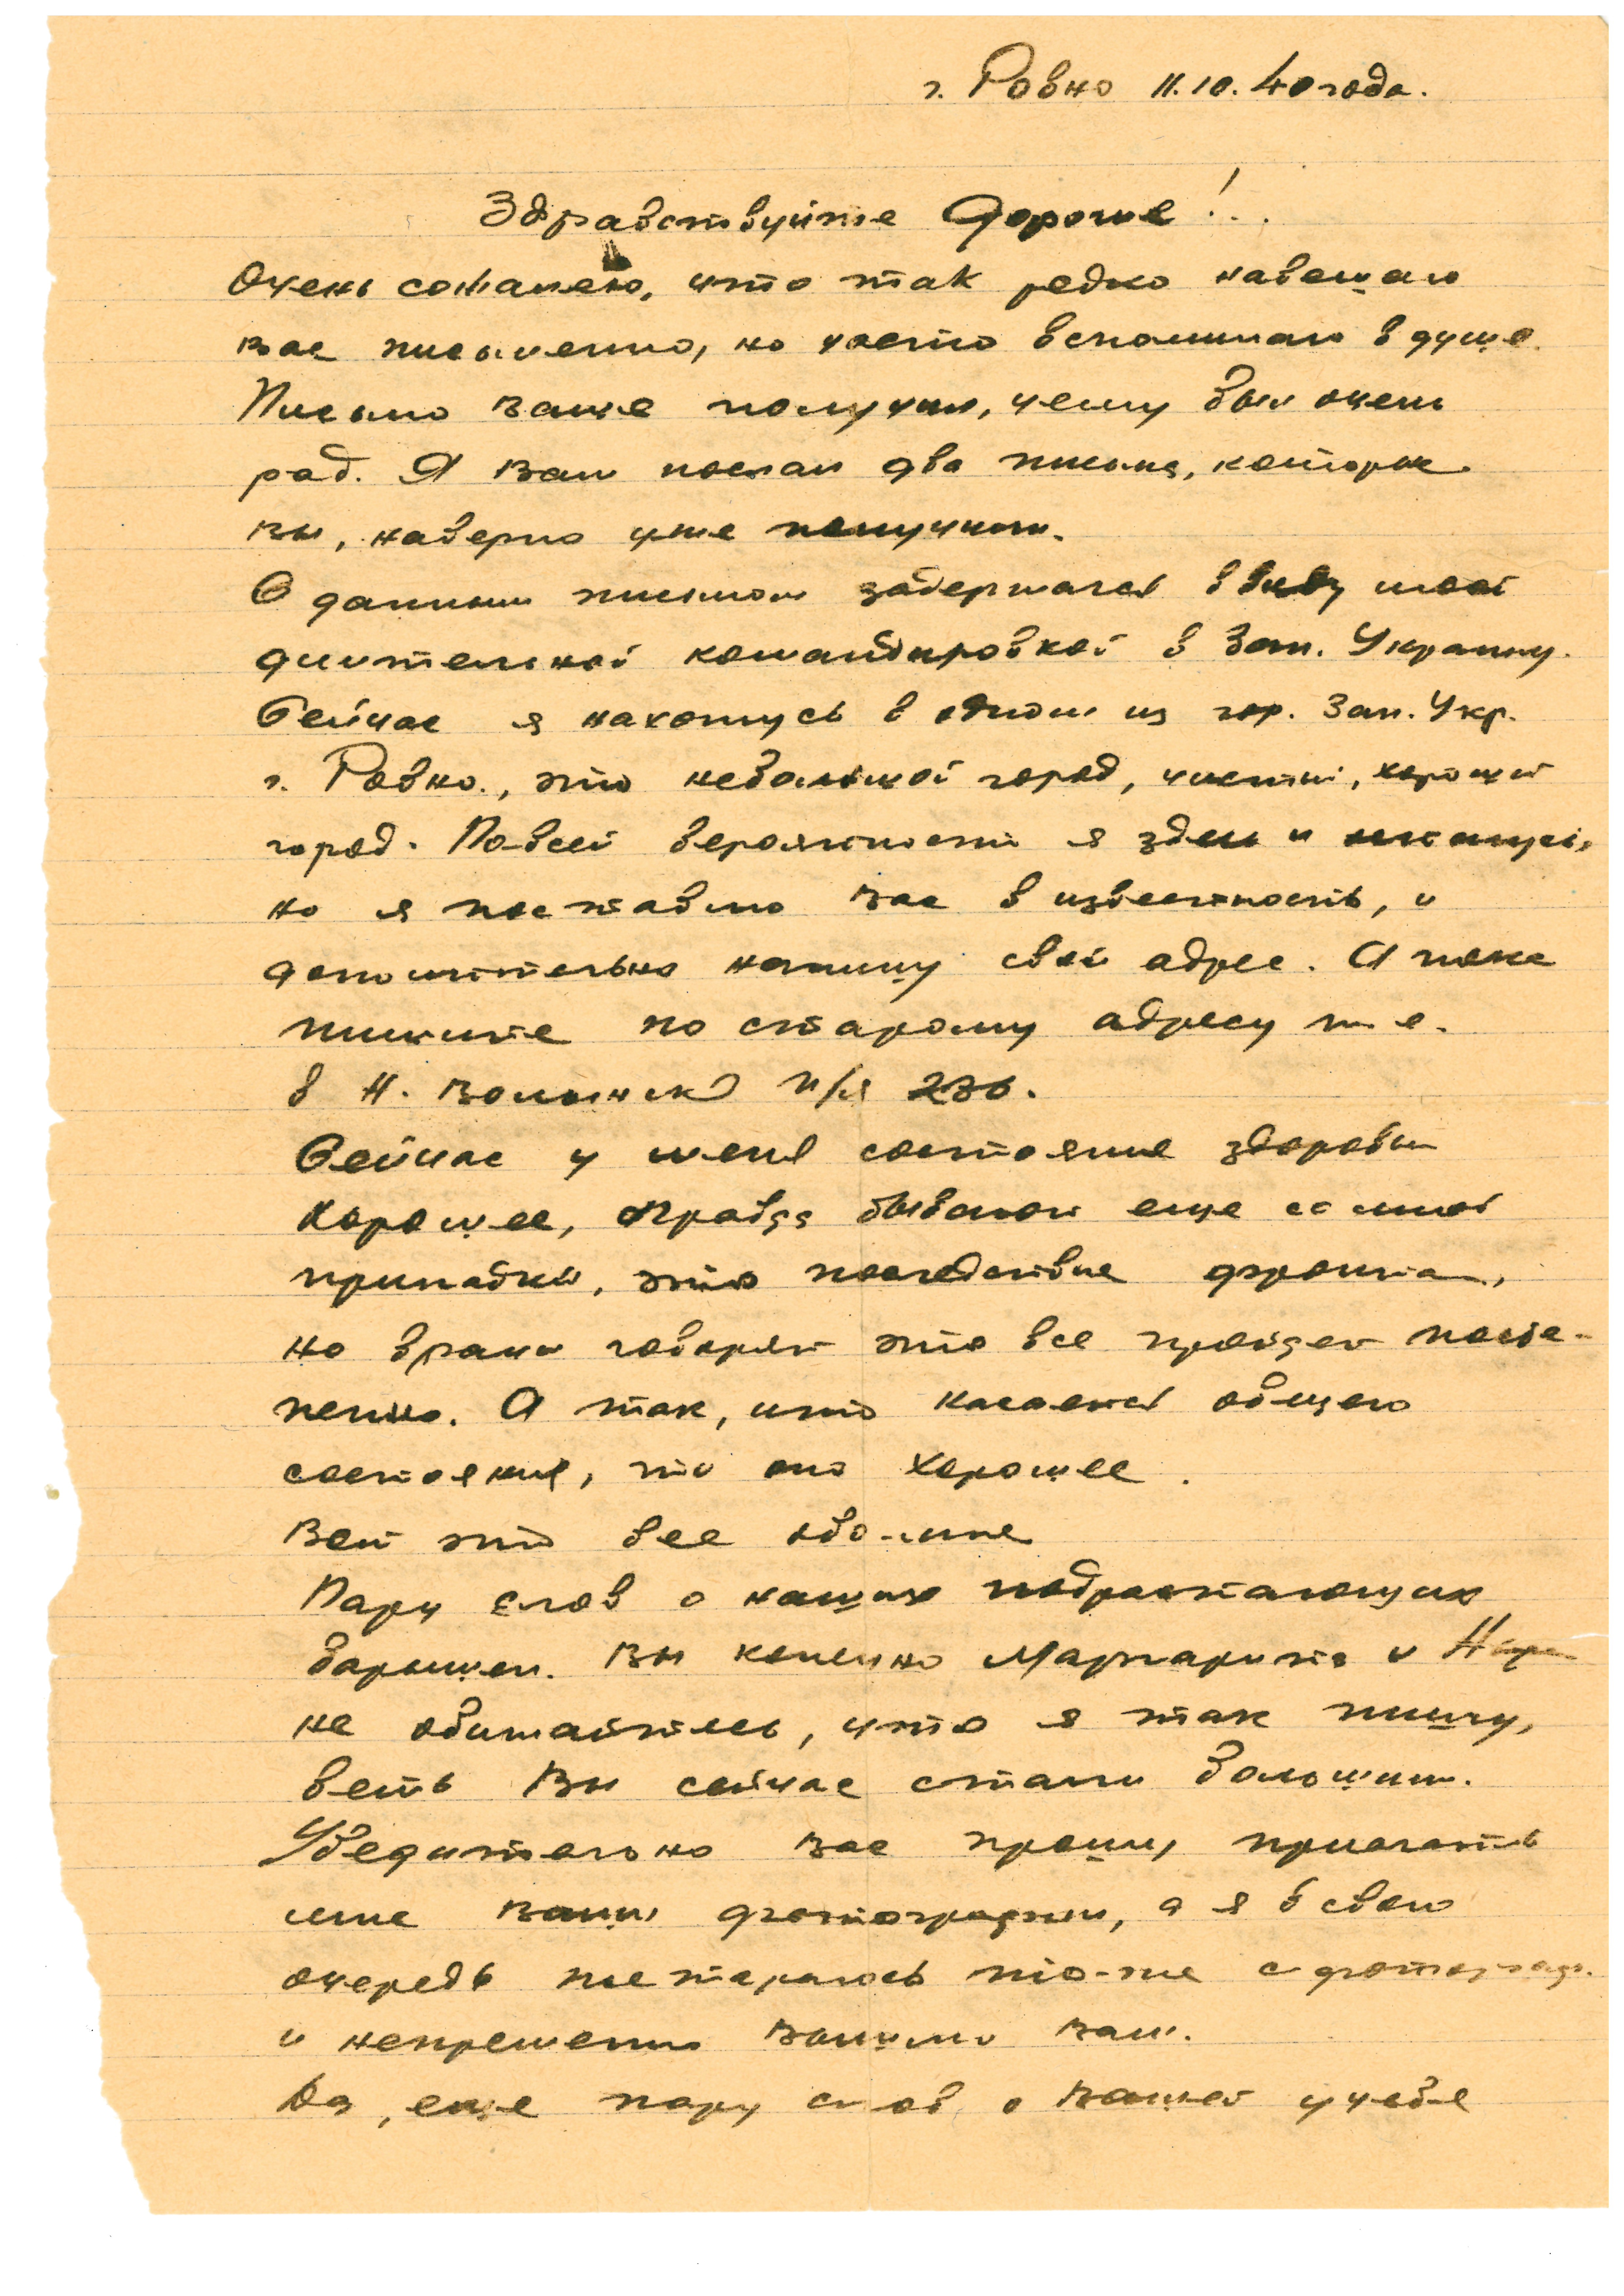 г. Ровно 11.10.40 года.
Здравствуйте Дорогие!..
Очень сожалею, что так редко навещаю
вас письменно, но часто вспоминаю в душе.
Письмо ваше получил, чему был очень
рад. Я Вам послал два письма, которые
вы, наверно уже получили.
С данным письмом задержался ввиду моей
длительной командировкой в Зап. Украину.
Сейчас я нахожусь в одном из гор. Зап. Укр.
г. Ровно., это небольшой город, чистый, хороший
город. По-всей вероятности я здесь и останусь,
но я поставлю Вас в известность, и
дополнительно напишу свой адрес. А пока
пишите по старому адресу т.е.
в Н. Волынск п/я 236.
Сейчас у меня состояние здоровья
хорошее, правда бывают еще со мной
припадки, это последствие фронта,
но врачи говорят это все пройдет посте-
пенно. А так, что касается общего
состояния, то оно хорошее.
Вот это все обо-мне
Пару слов о наших подрастающих
барышен. Вы конечно Маргарита и Нора
не обижайтесь, что я так пишу,
веть Вы сейчас стали большими.
Убедительно Вас прошу прислать
мне Ваши фотографии, а я в свою
очередь постараюсь то-же сфотограф.
и непременно вышлю Вам.
Да, еще пару слов о Вашей учебе